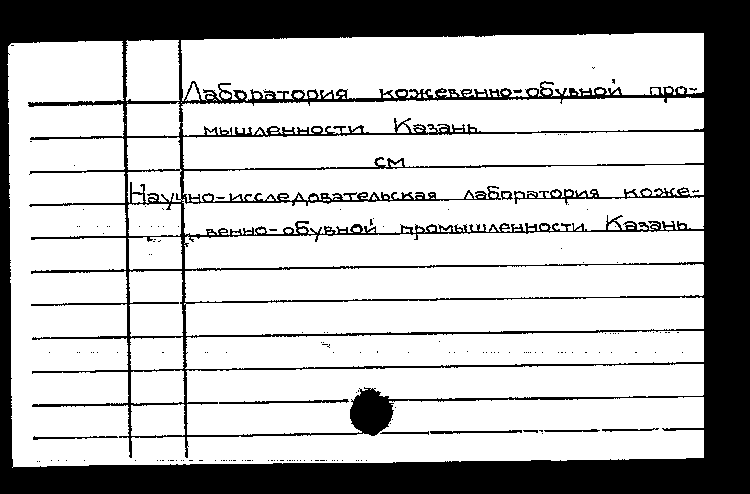 Лаборатория кожевенно-обувной про-
мышленности. Казань.
см
Научно-исследовательская лаборатория коже-
венно-обувной промышленности. Казань.